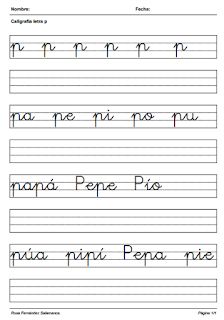 Nombre: Fecha:
Caligrafía letra p
p p p p p p
pa pe pi po pu
papá Pepe Pío
púa pipí Pepa pie
Rosa Fernández Salamanca Página 1/1